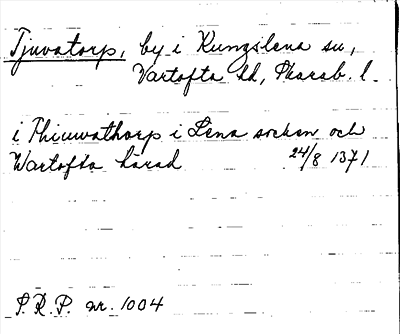 Tjuvatorp, by i Kungslena sn,
Vartofta hd, Skarab. l.
i Thiuwathorp i Lena socken och
Wartofta härad 24/8 1371
S.R.P. nr. 1004